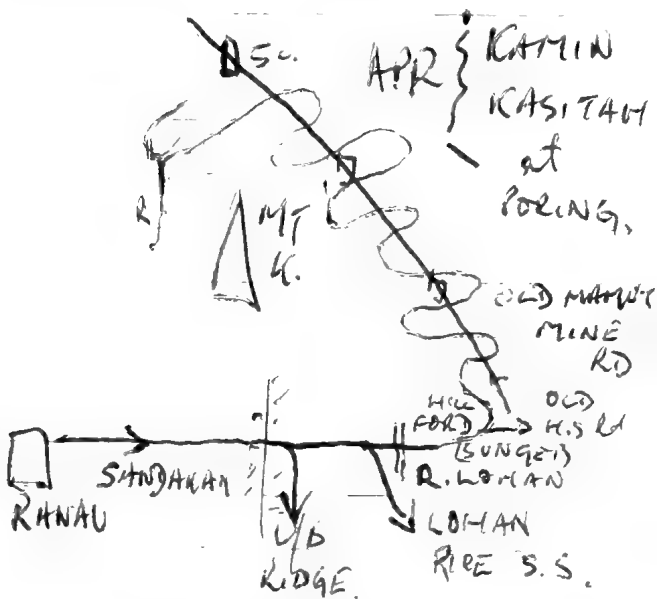 5c.
APR
KAMIN
KASITAH
at
PORING,
R
MT
K.
OLD MAMUT
MINE
RD
HILL
FORD
OLD
H.S Rd
(SUNGEI)
R. LOHAN
SANDAKAN
RANAU
U/D
RIDGE.
LOHAN
RICE S.S.